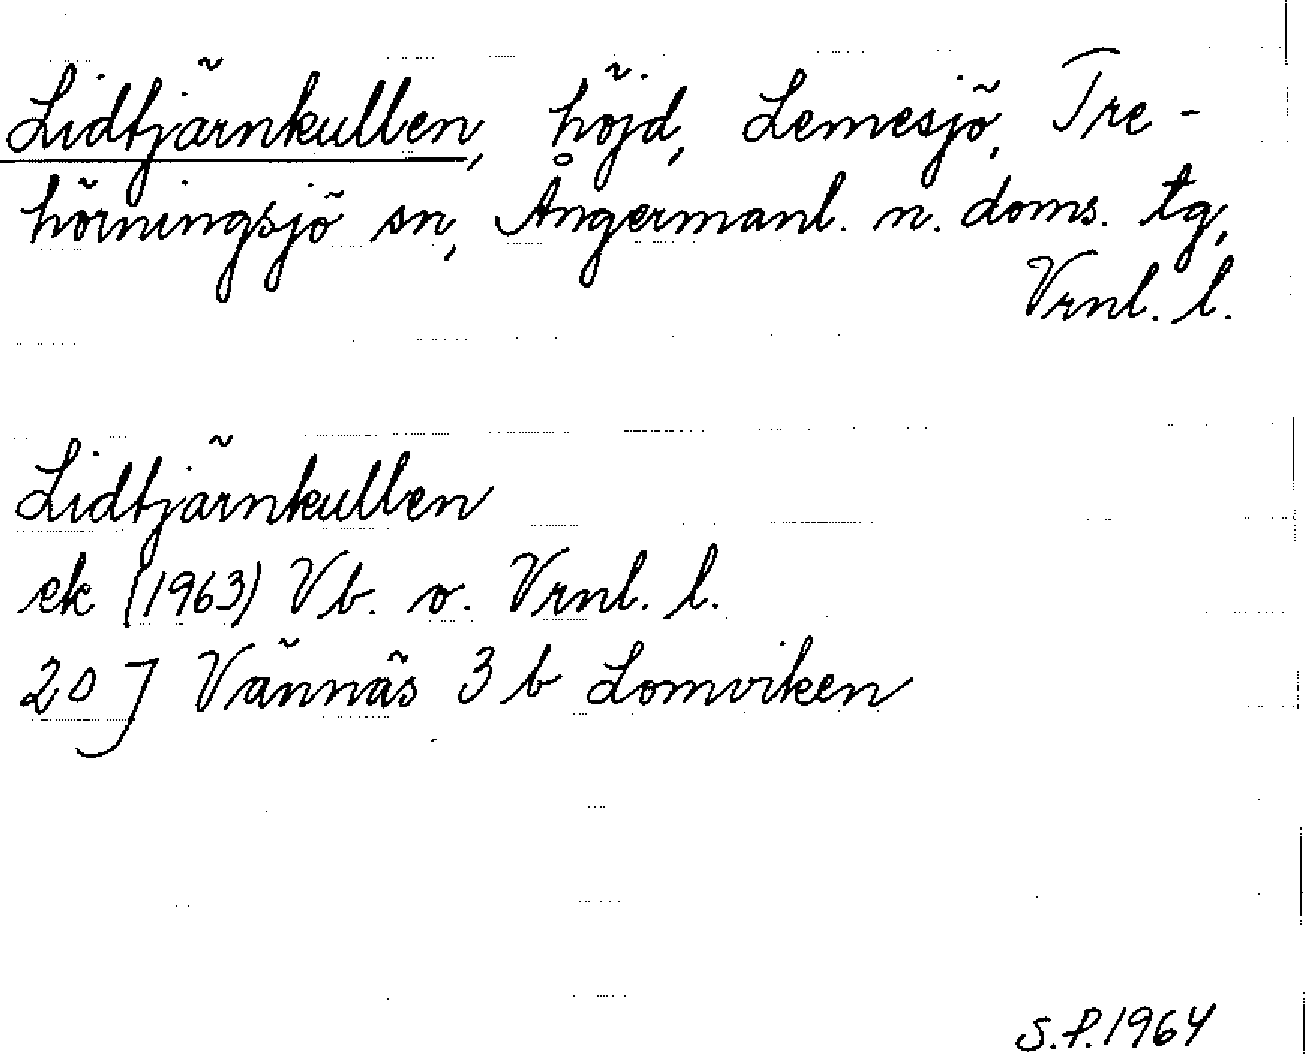 Lidtjärnkullen, höjd, Lemesjö, Tre-
hörningsjö sn, Ångermanl. n. doms. tg,
Vrnl. l.
Lidtjärnkullen
ek (1963) Vb. o. Vrnl. l.
20 J Vännäs 3 b Lomviken
S.P. 1964